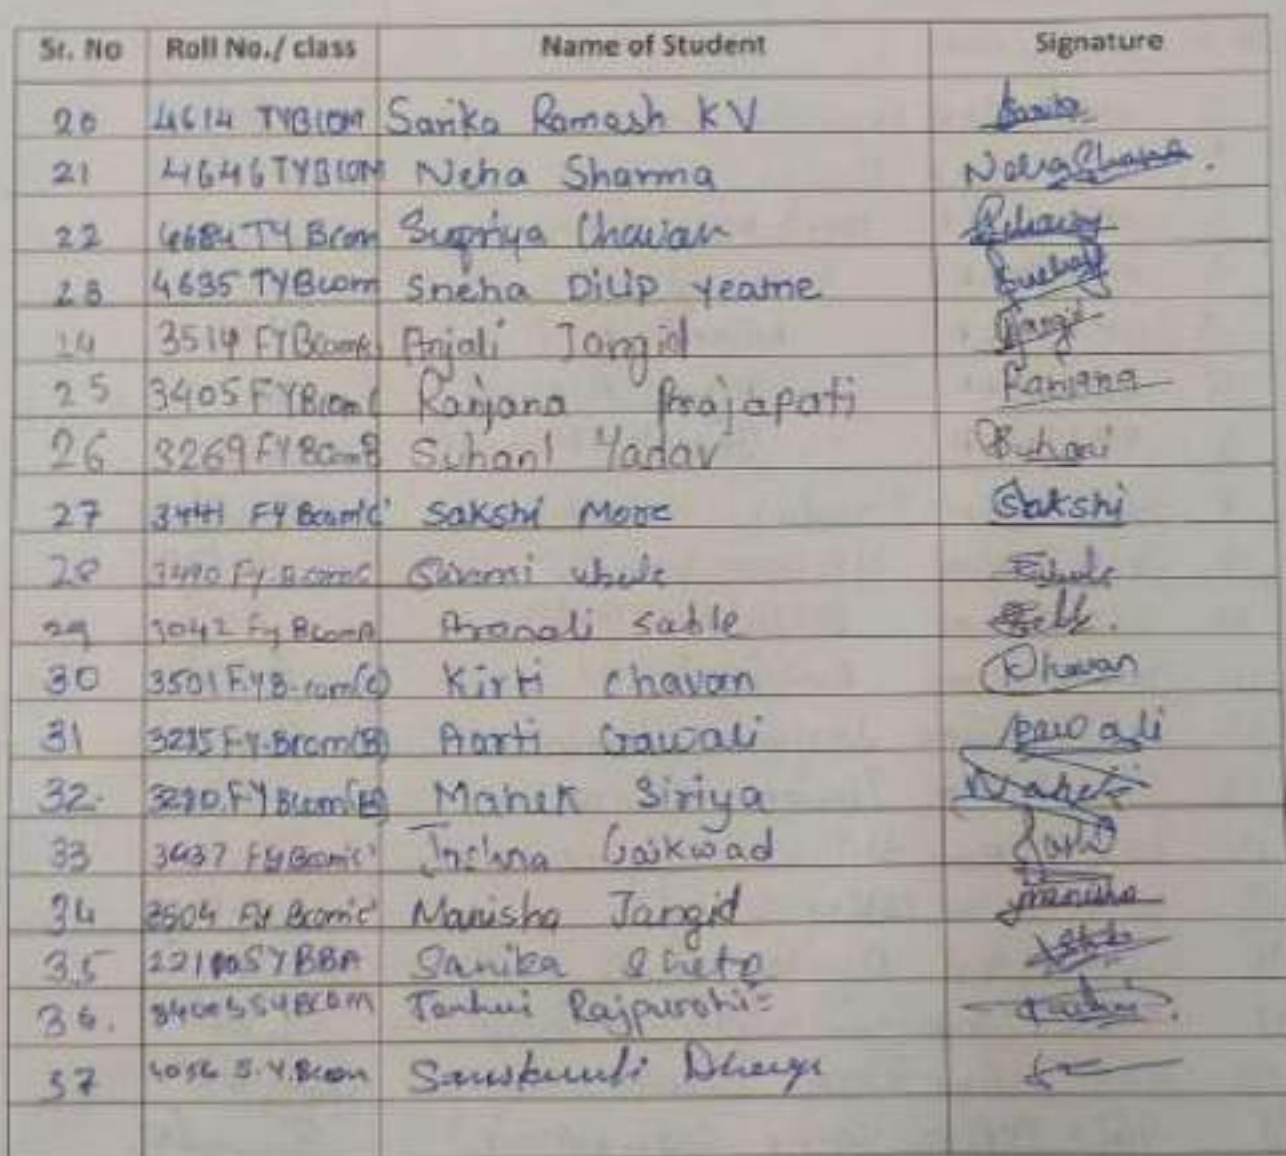 Sr. No Roll No./ class Name of Student Signature
20 4614 TYBCOM Sarika Ramesh KV
21 4646 TYBCOM Neha Sharma Neha Sharma.
22 4684 TY Bcom Supriya Chavan
23 4635 TYBcom Sneha Dilip Yeame
24 3514 FYBcom Anjali Jangid Jangid
25 3405 FYBcom Ranjana Prajapati Ranjana
26 3269 FYBcomB Suhani Yadav Suhani
27 3441 FY Bcom'c' Sakshi More Sakshi
28 FY.BcomC
29 3042 Fy BcomA Pranali Sable
30 3501 F.Y.B-com(C) Kirti Chavan Chavan
31 3285 FY-Bcom(B) Aarti Gawali Gawali
32. 3290 FYBcom(B) Mahek Siriya Mahek
33 3437 FyBcom'c' Gaikwad
34 3504 FY Bcom'c' Manisha Jangid Manisha
35 SYBBA Sanika Shete
36. SYBCOM Rajpurohit
37 4056 S.Y.Bcom